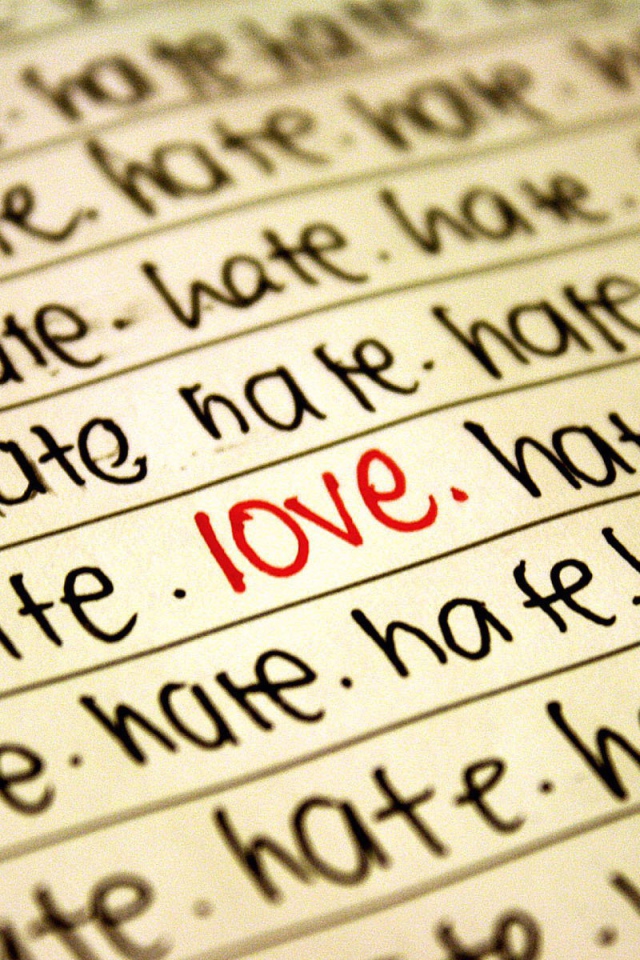 . hate hate
te. hate. hate. h
ate. hate. hate.
ate hate. hate
ate . love. hat
e. hate. hate!
ate . hate. h
te .